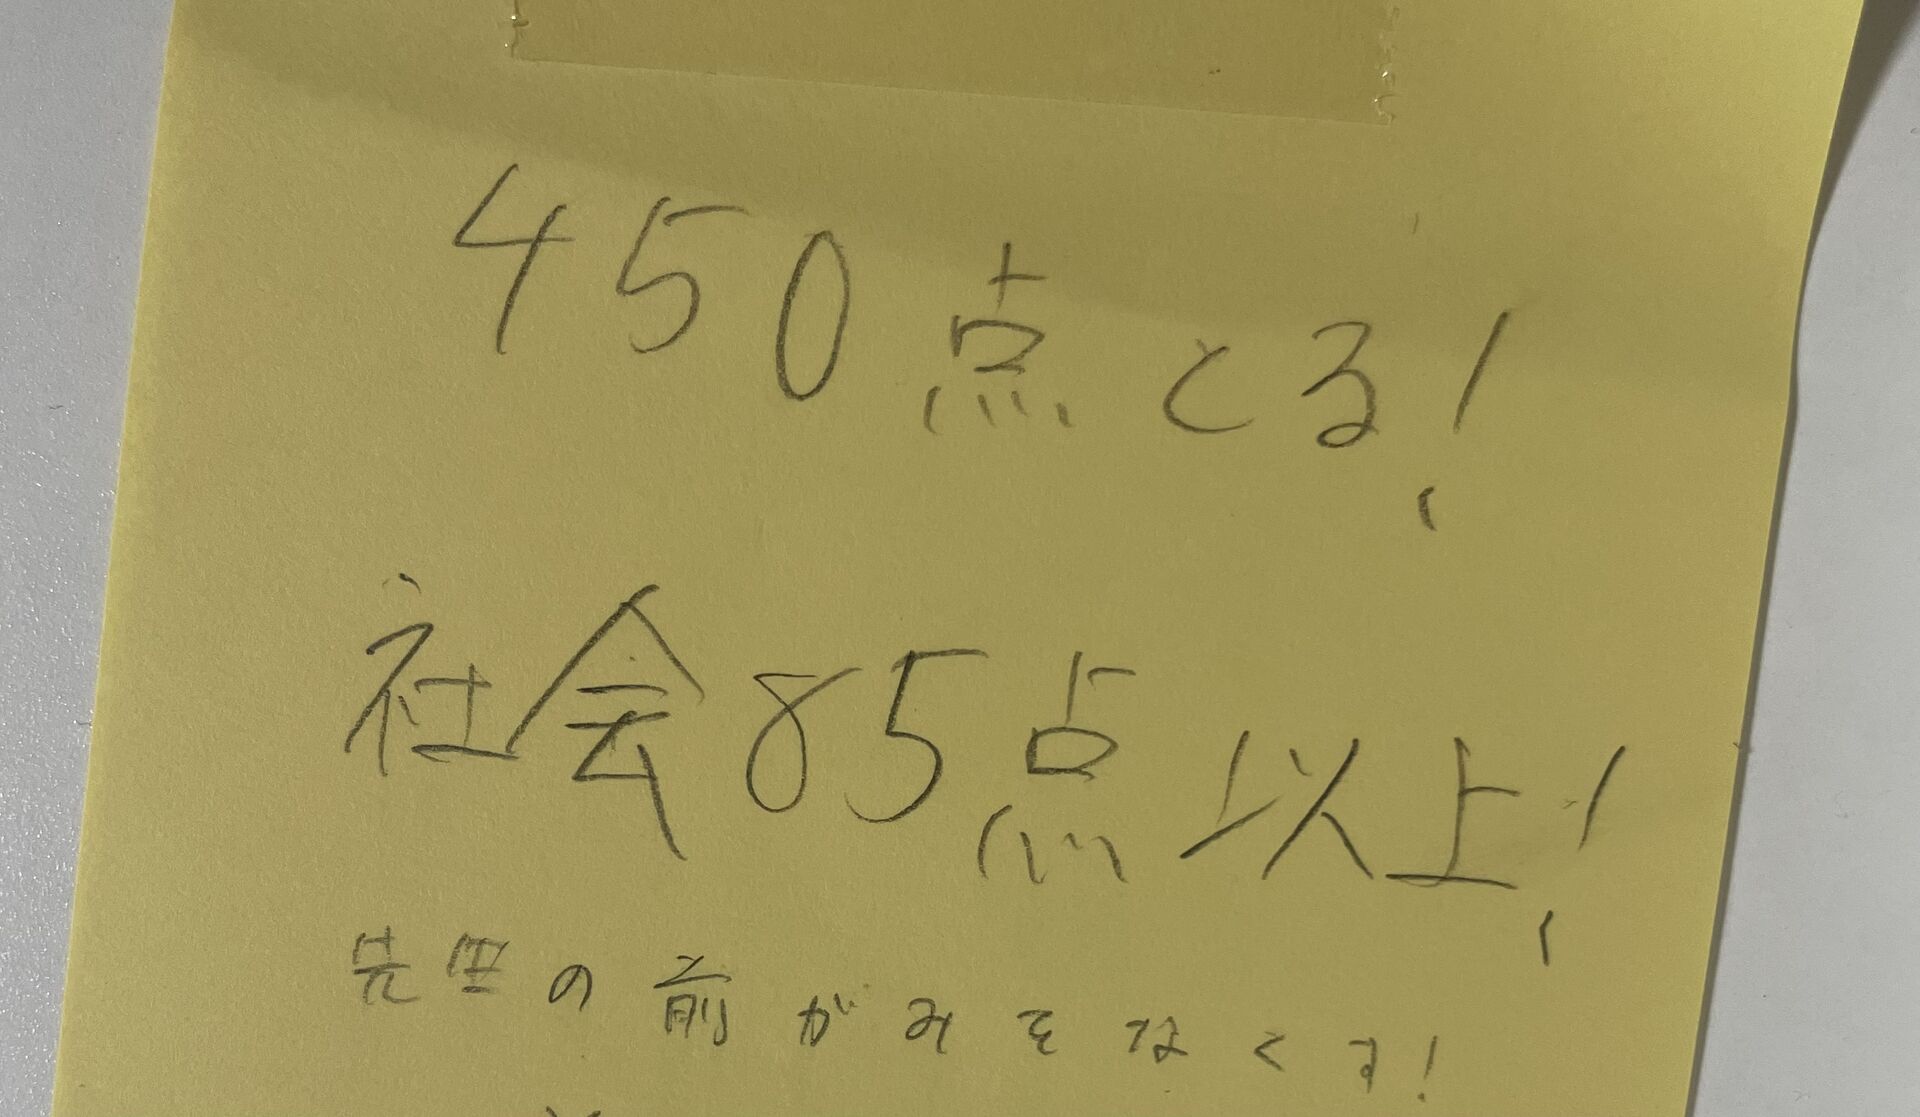 450点とる!
社会85点以上!
先生の前がみをなくす!